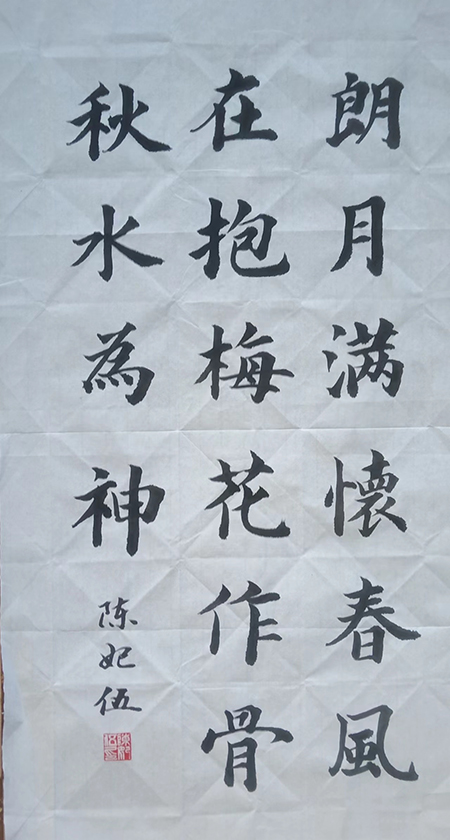 朗月满懷春風
在抱梅花作骨
秋水為神
陈妃伍